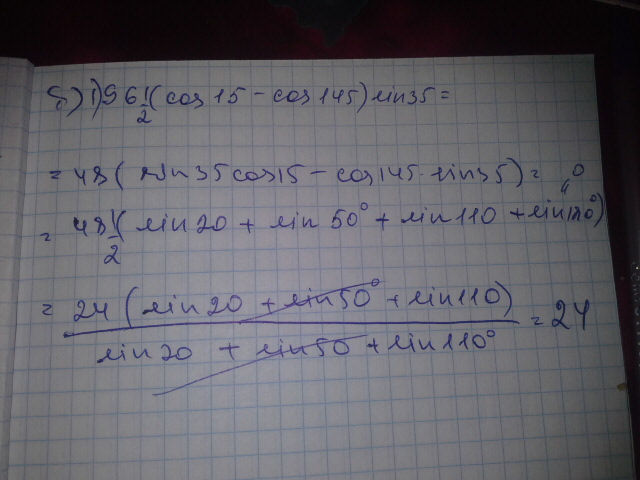 б) 1) 96 1/2 (cos 15 - cos 145) sin 35 =
= 48 ( sin 35 cos 15 - cos 145 · sin 35 ) =
= 48 1/2 ( sin 20 + sin 50° + sin 110 + sin 180° ) " 0
= 24 ( sin 20 + sin 50° + sin 110 ) = 24
sin 20 + sin 50 + sin 110°